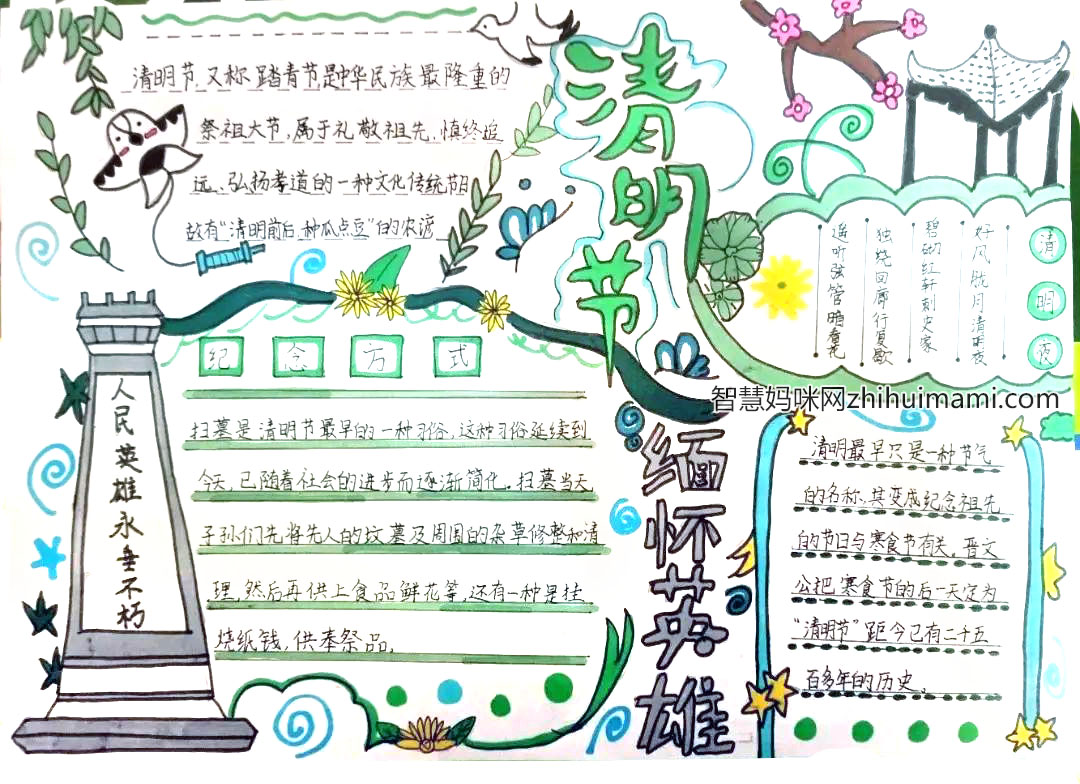 清明节,又称踏青节,是中华民族最隆重的
祭祖大节,属于礼敬祖先、慎终追
远、弘扬孝道的一种文化传统节日
故有"清明前后,种瓜点豆"的农谚
清明节
清明夜
好风胧月清明夜
碧砌红轩刺史家
独绕回廊行复歇
遥听弦管暗看花
纪念方式
扫墓是清明节最早的一种习俗,这种习俗延续到
今天,已随着社会的进步而逐渐简化。扫墓当天,
子孙们先将先人的坟墓及周围的杂草修整和清
理,然后再供上食品鲜花等,还有一种是挂
烧纸钱,供奉祭品。
人民英雄永垂不朽
缅怀英雄
清明最早只是一种节气
的名称、其变成纪念祖先
的节日与寒食节有关。晋文
公把寒食节的后一天定为
"清明节"距今已有二千五
百多年的历史。
智慧妈咪网zhihuimami.com